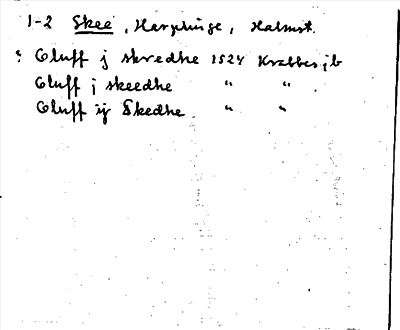 1-2 Skee, Harplinge, Halmst.
: Oluff j skredhe 1524 Krabbes jb
Oluff j skeedhe " "
Oluff ij Skedhe " "